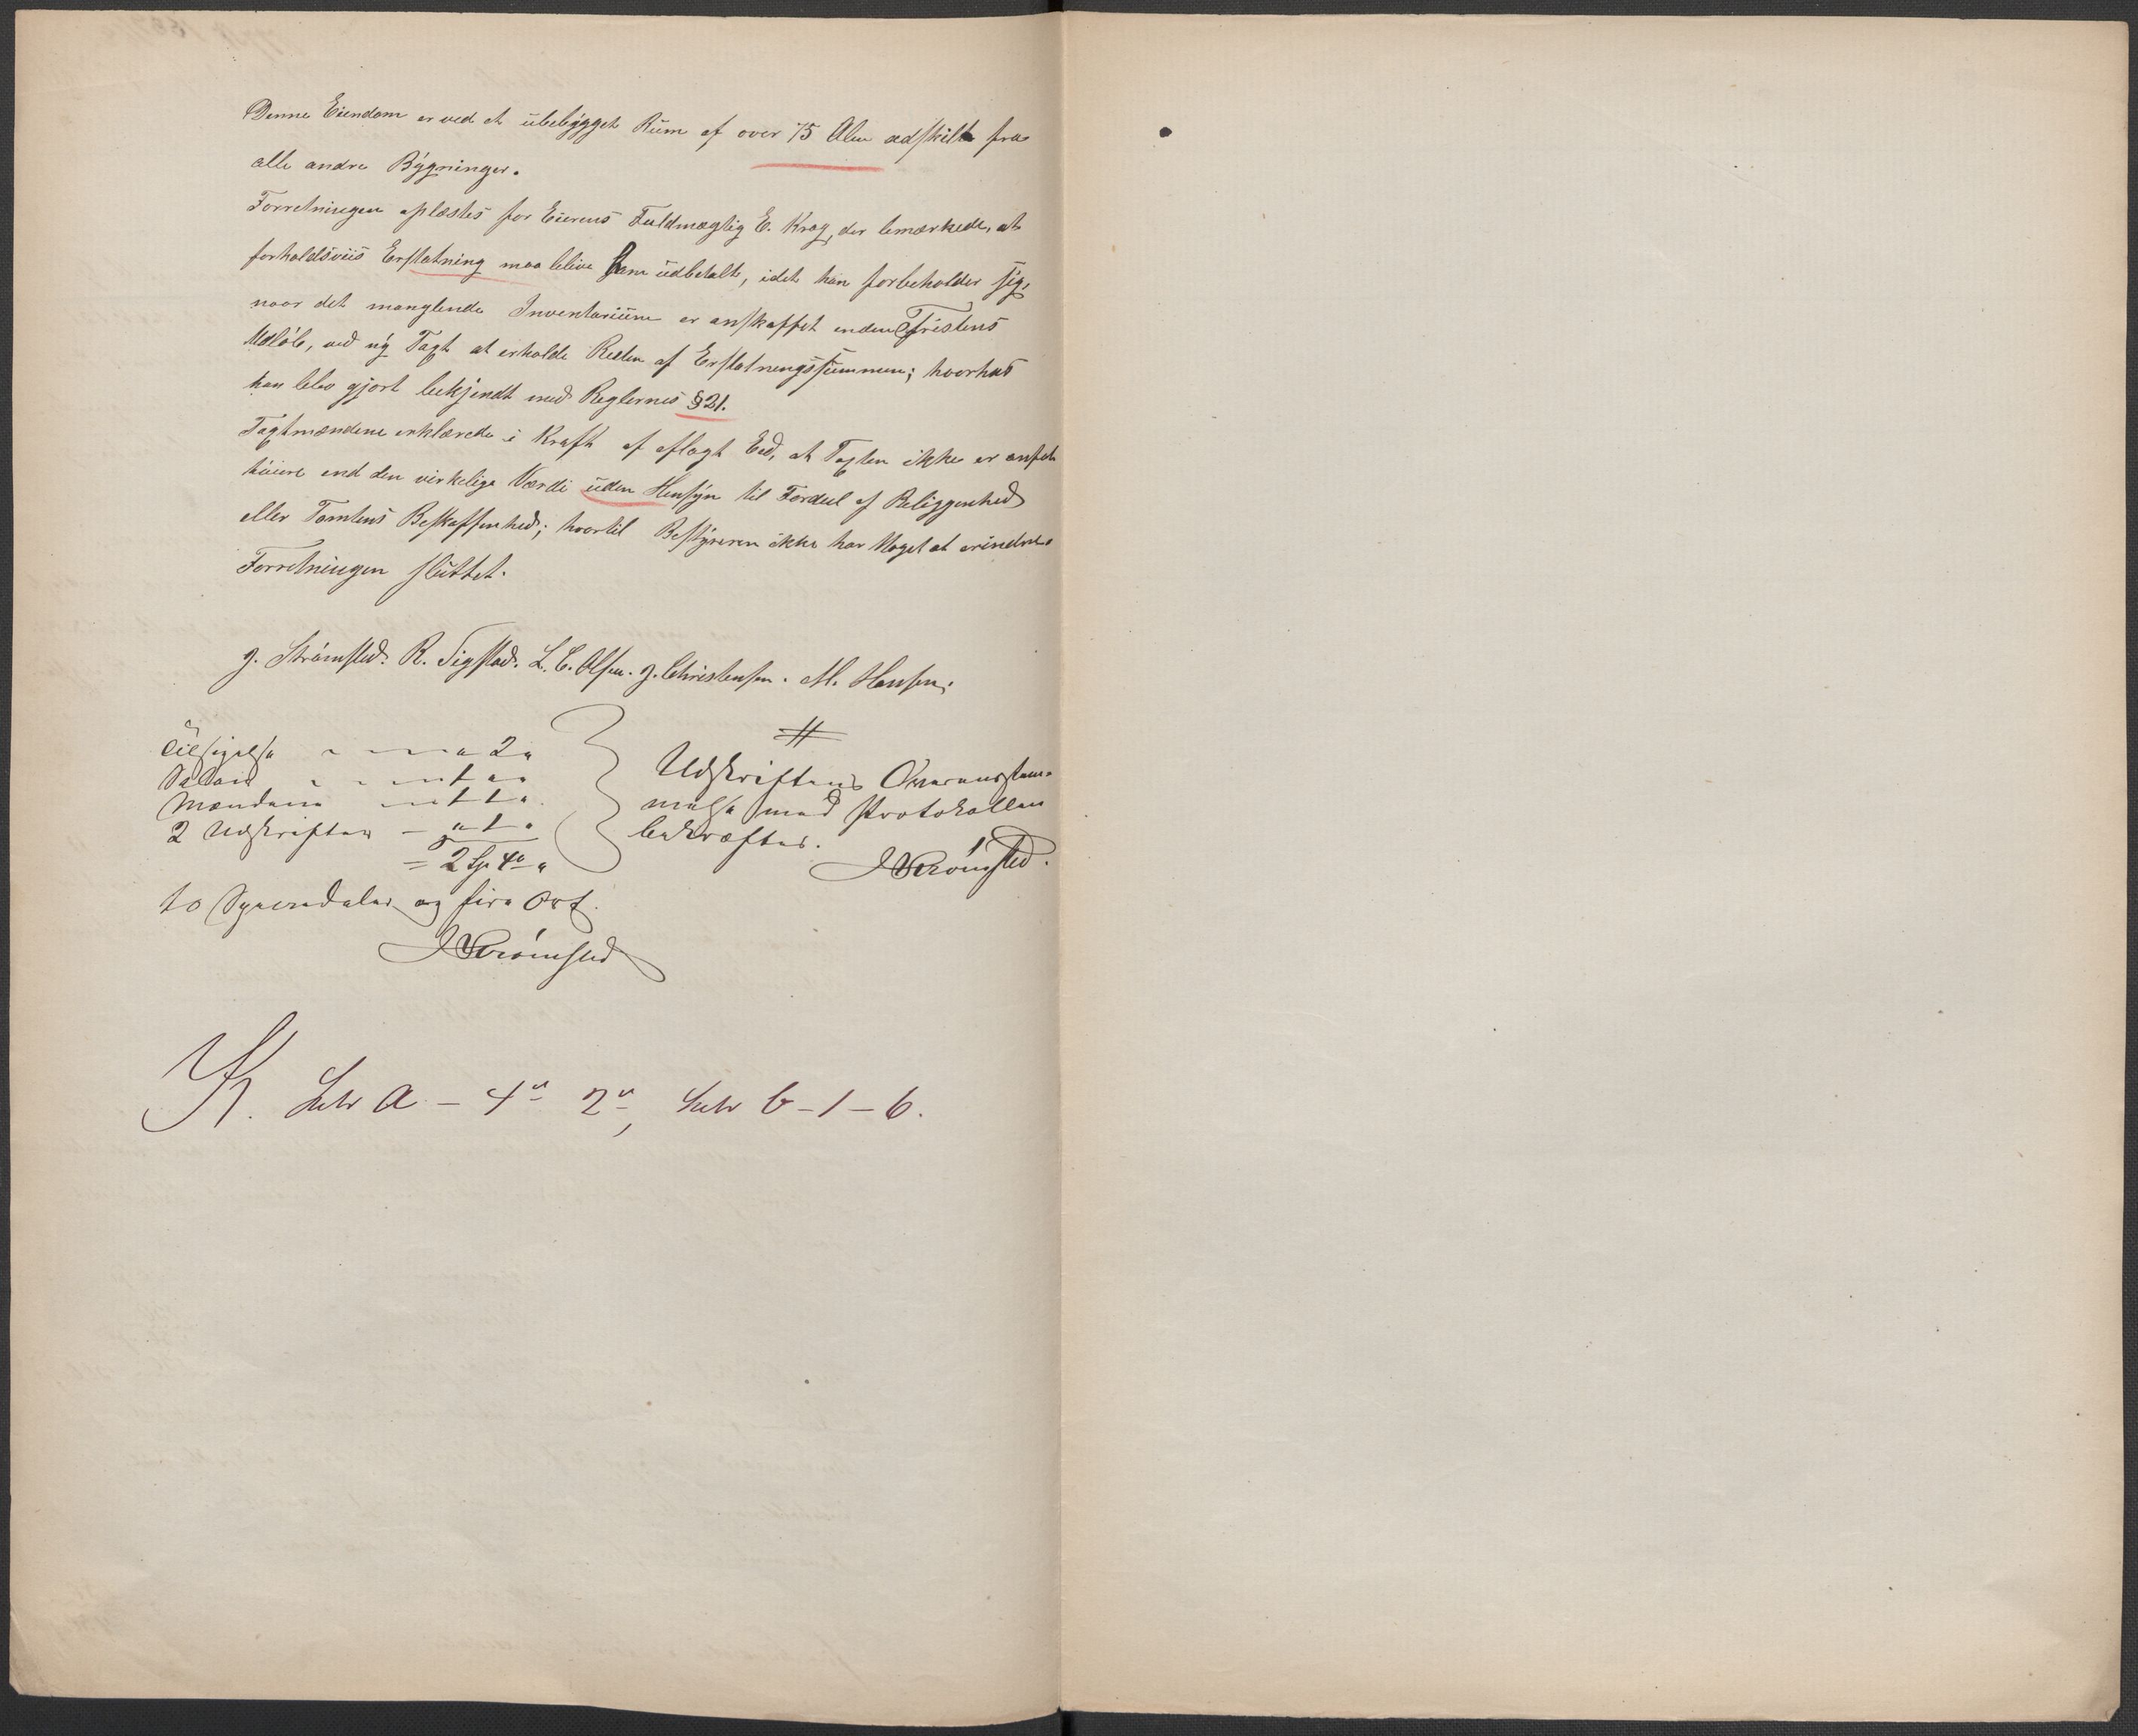 Denne Eiendom er ved et ubebygget Rum af over 75 Alen adskilt fra
alle andre Bygninger.
Forretningen oplæstes for Eierens Fuldmægtig E. Krog, der bemærkede, at
forholdsviis Erstatning maa blive ham udbetalt, idet han forbeholder sig,
naar det manglende Inventarium er anskaffet inden Fristens
Udløb, ved ny Taxt at erholde Resten af Erstatningssummen; hvorhos
han blev gjort bekjendt med Reglernes § 21.
Taxtmændene erklærede i Kraft af aflagt Eed, at Taxten ikke er ansat
høiere end den virkelige Værdi uden Hensyn til Fordeel af Beliggenhed
eller Tomtens Beskaffenhed; hvortil Bestyreren ikke har Noget at erindre.
Forretningen sluttet.
J. Strømsted. R. Sigstad. L. C. Olsen. J. Christensen. M. Hansen.
Tilsigelse 2
Udskriftens Overensstem-
Salair 1
melse med Protokollen
Mændene 1 1
bekræftes.
2 Udskrifter 1
JStrømsted.
= 2 Sp 4
to Speciedaler og fire Ort.
JStrømsted
K. Litr a - 4 2, Litr b - 1 - 6.